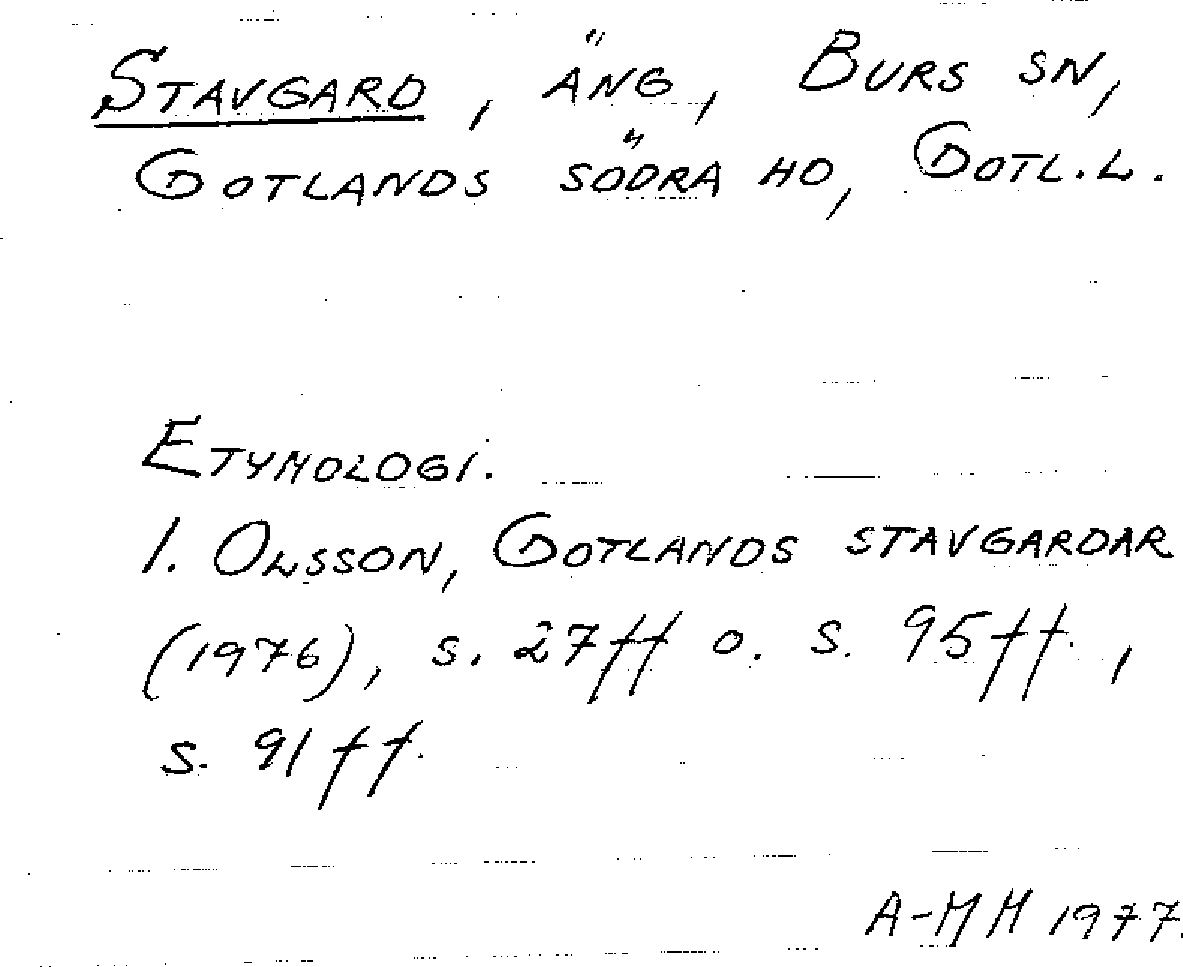 STAVGARD, ÄNG, BURS SN,
GOTLANDS SÖDRA HD, GOTL.L.
ETYMOLOGI:
I. OLSSON, GOTLANDS STAVGARDAR
(1976), s. 27ff o. s. 95ff.,
s. 91ff.
A-MH 1977.